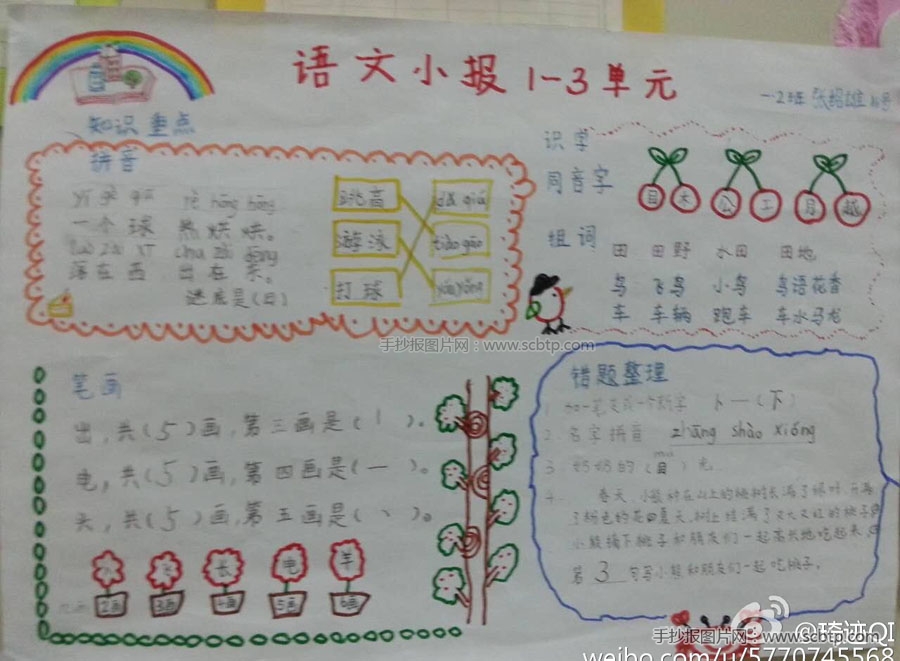 语文小报1-3单元
知识重点
拼音
一个球 热烘烘。
落在西 出在东。
谜底是(日)
跳高
游泳 tiào gāo
打球 yóu yǒng
识字
同音字 目 木 公 工 月 越
组词 田 田野 水田 田地
鸟 飞鸟 小鸟 鸟语花香
车 车辆 跑车 车水马龙
手抄报图片网:www.scbtp.com
笔画
出,共(5)画,第三画是(丨)。
电,共(5)画,第四画是(一)。
头,共(5)画,第五画是(丶)。
长 电 羊
2画 3画 4画 5画 6画
错题整理
1. 加一笔变成一个新字 卜一(下)
2. 名字拼音 zhāng shào xióng
3. 奶奶的(目)光
4. 春天,小熊种在山上的桃树长满了绿叶,开满
了粉色的花。夏天,树上结满了又大又红的桃子。
小熊摘下桃子和朋友们一起高兴地吃起来。
第3句写小熊和朋友们一起吃桃子。
@琦迹QI
手抄报图片网:www.scbtp.com
weibo.com/u/5770745568